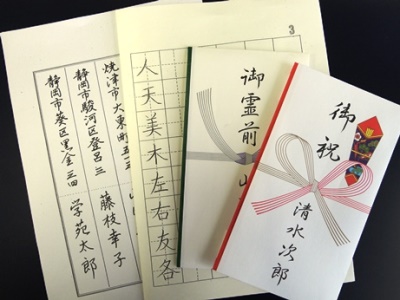 焼津市大東町五ー五
静岡市駿河区登呂三
藤枝幸子
静岡市葵区黒金三四
学苑太郎
3
人天美木左右友各
御霊前
山
御祝
清水次郎